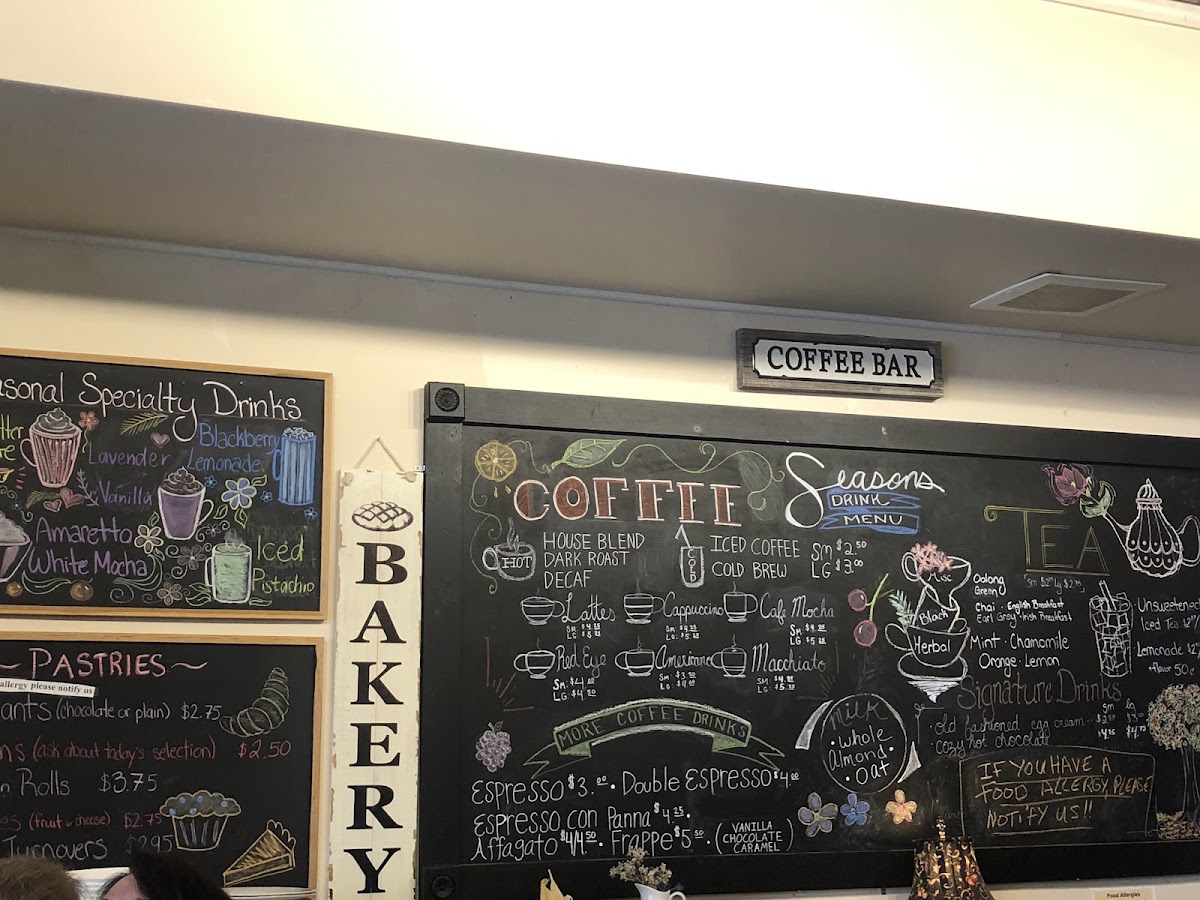 COFFEE BAR
Seasonal Specialty Drinks
Lavender
Vanilla
Blackberry
Lemonade
Amaretto
White Mocha
Iced
Pistachio
~ PASTRIES ~
allergy please notify us
(chocolate or plain) $2.75
(ask about today's selection) $2.50
Rolls $3.75
(fruit or cheese) $2.75
Turnovers $2.95
BAKERY
COFFEE
Seasons
DRINK
MENU
HOT
HOUSE BLEND
DARK ROAST
DECAF
COLD
ICED COFFEE
COLD BREW
SM $2.50
LG $3.00
Lattes
Cappuccino
Cafe Mocha
Red Eye
SM $4.00
LG $4.50
Americano
Macchiato
MORE COFFEE DRINKS
Espresso $3.00 · Double Espresso $4.00
Espresso con Panna $4.25 ·
Affagato $4/4.50 · Frappe $5.50 · (VANILLA
CHOCOLATE
CARAMEL)
Milk
· whole
Almond ·
· Oat
TEA
Misc
Black
Herbal
Oolong
Green
Chai · English Breakfast
Earl Gray · Irish Breakfast
Mint · Chamomile
Orange · Lemon
Unsweetened
Iced Tea
Lemonade
Signature Drinks
· old fashioned egg cream
· cozy hot chocolate
IF YOU HAVE A
FOOD ALLERGY, PLEASE
NOTIFY US!!
Food Allergies